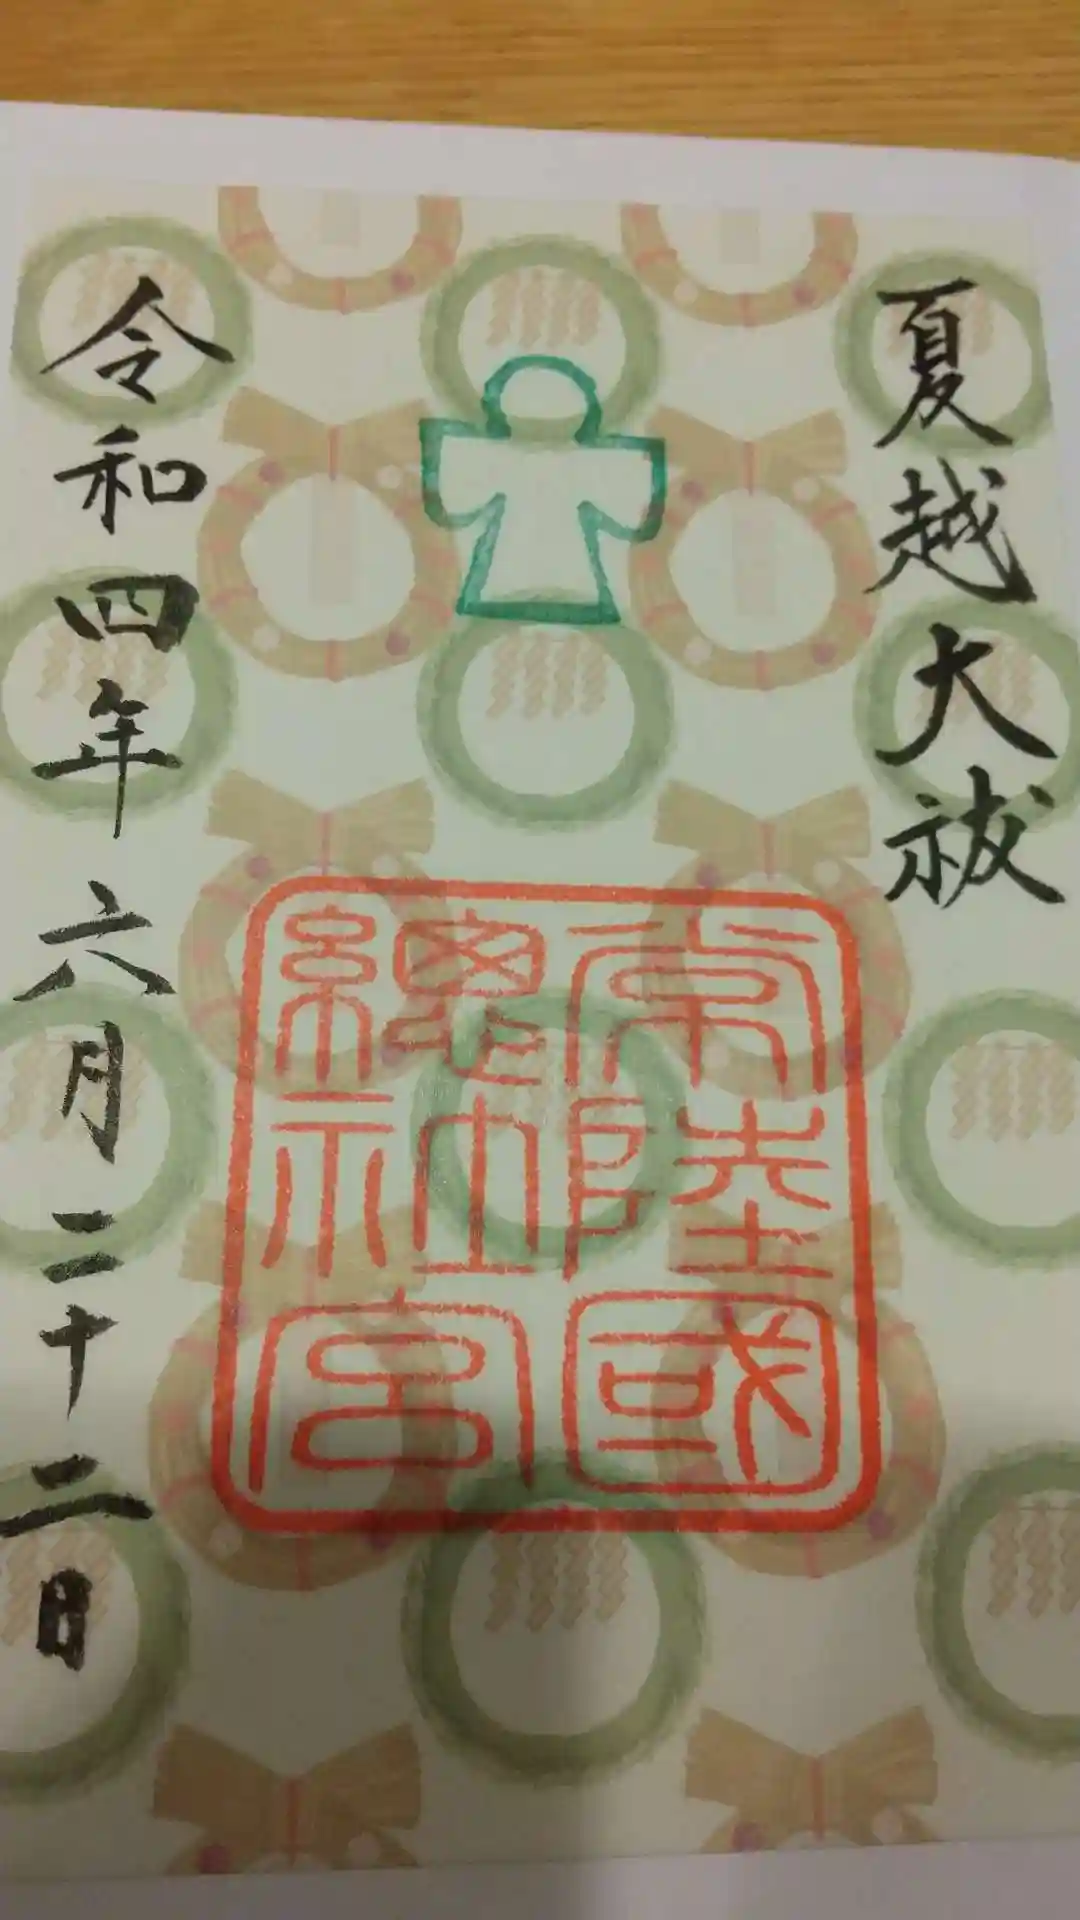 夏越大祓
常陸國
總社宮
令和四年六月二十二日